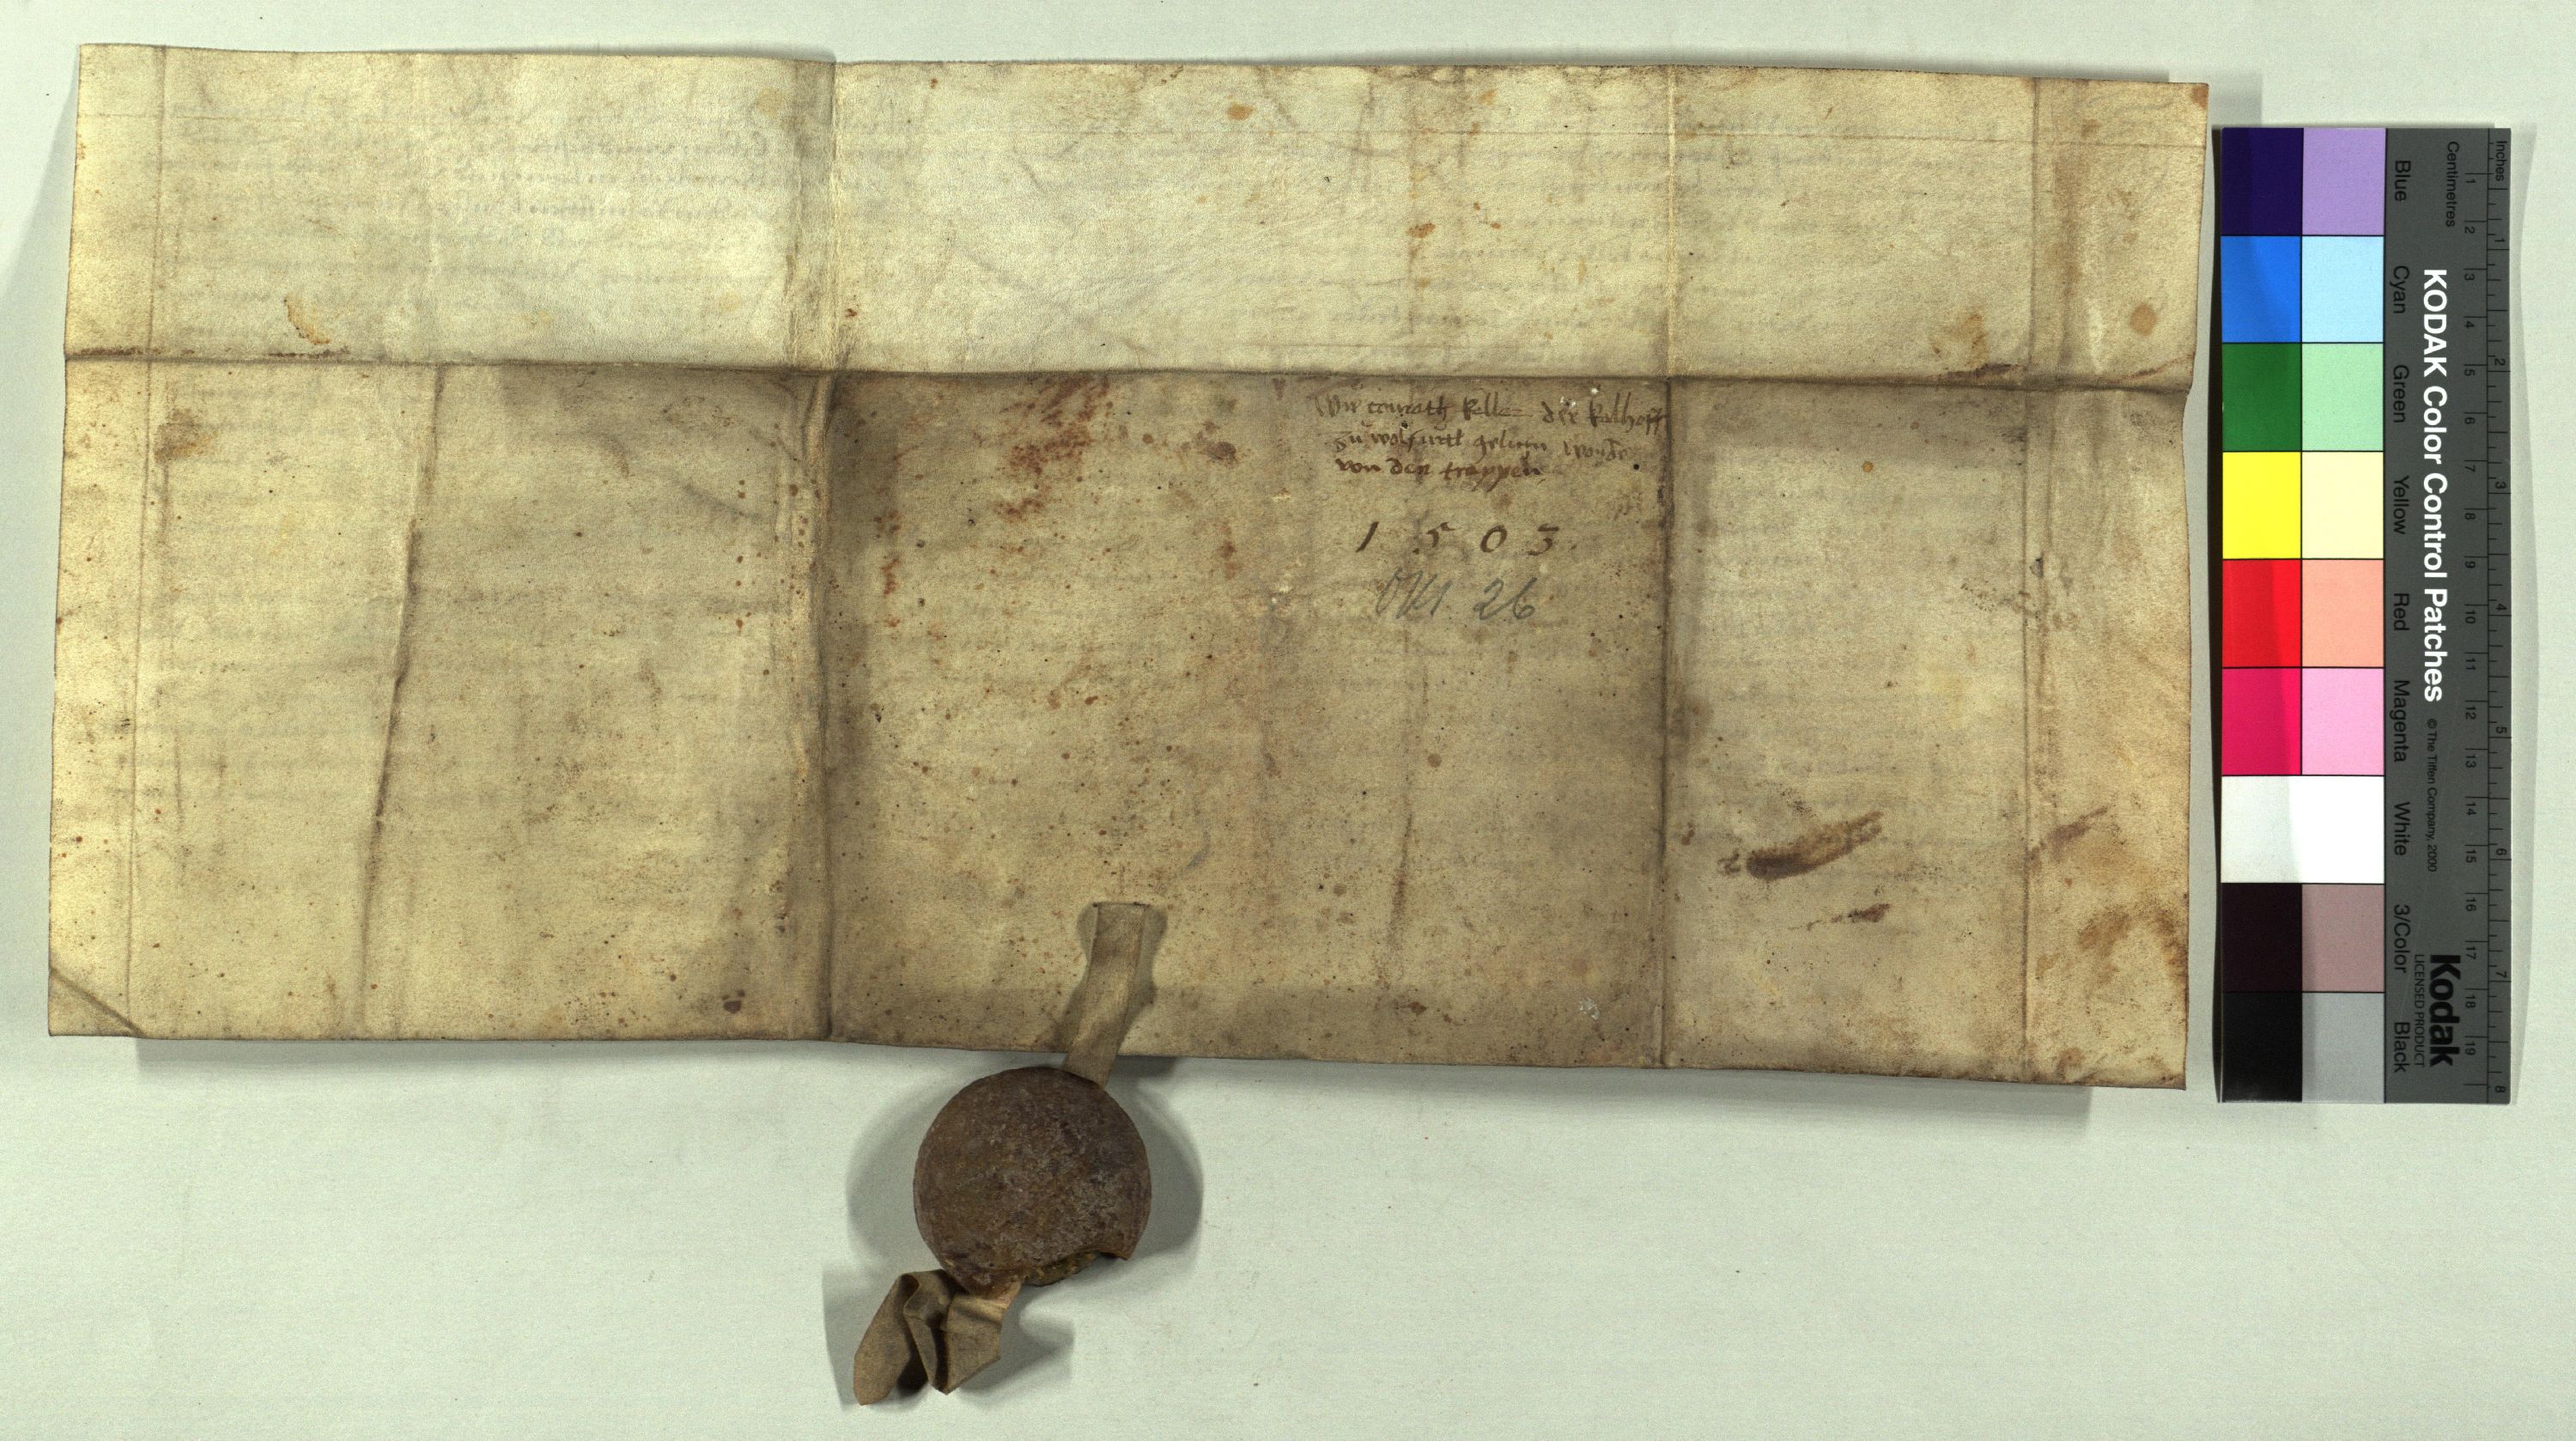 Wie conrath keller der kelhoff
zu wolfurtt gelichn wurde
von den trappen
1503
26
KODAK Color Control Patches
© The Tiffen Company, 2000
Kodak
LICENSED PRODUCT
Inches
Centimetres
1 2 3 4 5 6 7 8 9 10 11 12 13 14 15 16 17 18 19
1 2 3 4 5 6 7 8
Blue Cyan Green Yellow Red Magenta White 3/Color Black